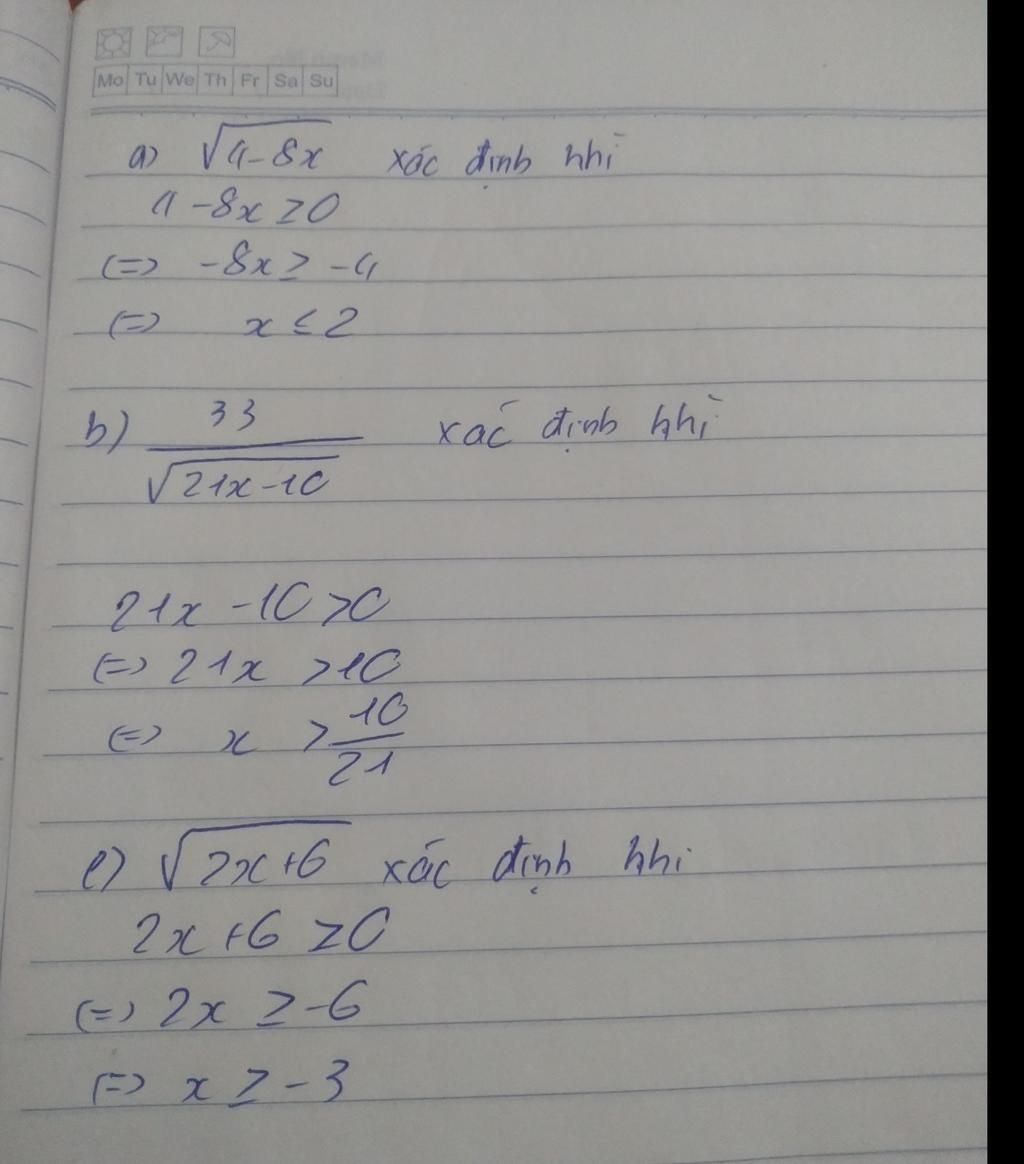 Mo Tu We Th Fr Sa Su
a) √(4-8x) xác định khi
4-8x ≥ 0
(=) -8x ≥ -4
(=) x ≤ 2
b) 33/√(21x-10) xác định khi
21x - 10 > 0
(=) 21x > 10
(=) x > 10/21
e) √(2x+6) xác định khi
2x+6 ≥ 0
(=) 2x ≥ -6
(=) x ≥ -3